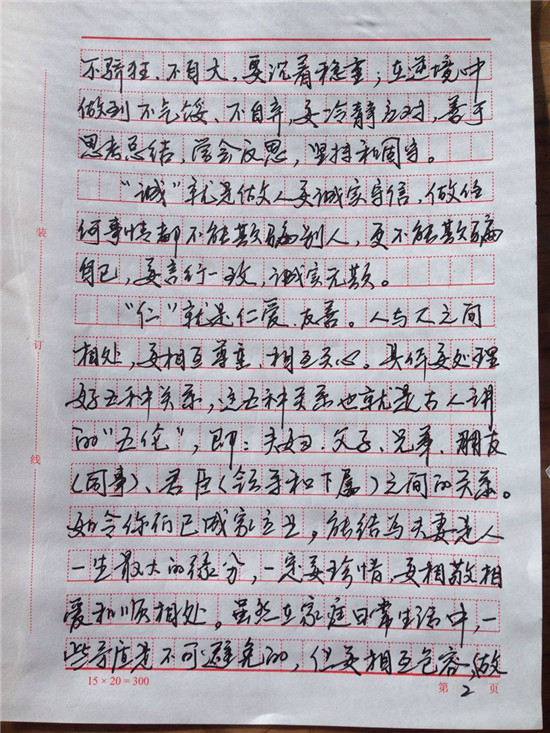 不骄狂、不自大、要沉着稳重；在逆境中
做到不气馁、不自弃，要冷静应对，善于
思考总结，学会反思，坚持和固守。
“诚”就是做人要诚实守信，做任
何事情都不能欺骗别人，更不能欺骗
自己，要言行一致，诚实无欺。
“仁”就是仁爱、友善。人与人之间
相处，要相互尊重、相互关心。具体要处理
好五种关系，这五种关系也就是古人讲
的“五伦”，即：夫妇、父子、兄弟、朋友
（同事）、君臣（领导和下属）之间的关系。
如今你们已成家立业，能结为夫妻是人
一生最大的缘分，一定要珍惜，要相敬相
爱和顺相处。虽然在家庭日常生活中，一
些矛盾是不可避免的，但要相互包容，做
装
订
线
15×20=300
第 2 页